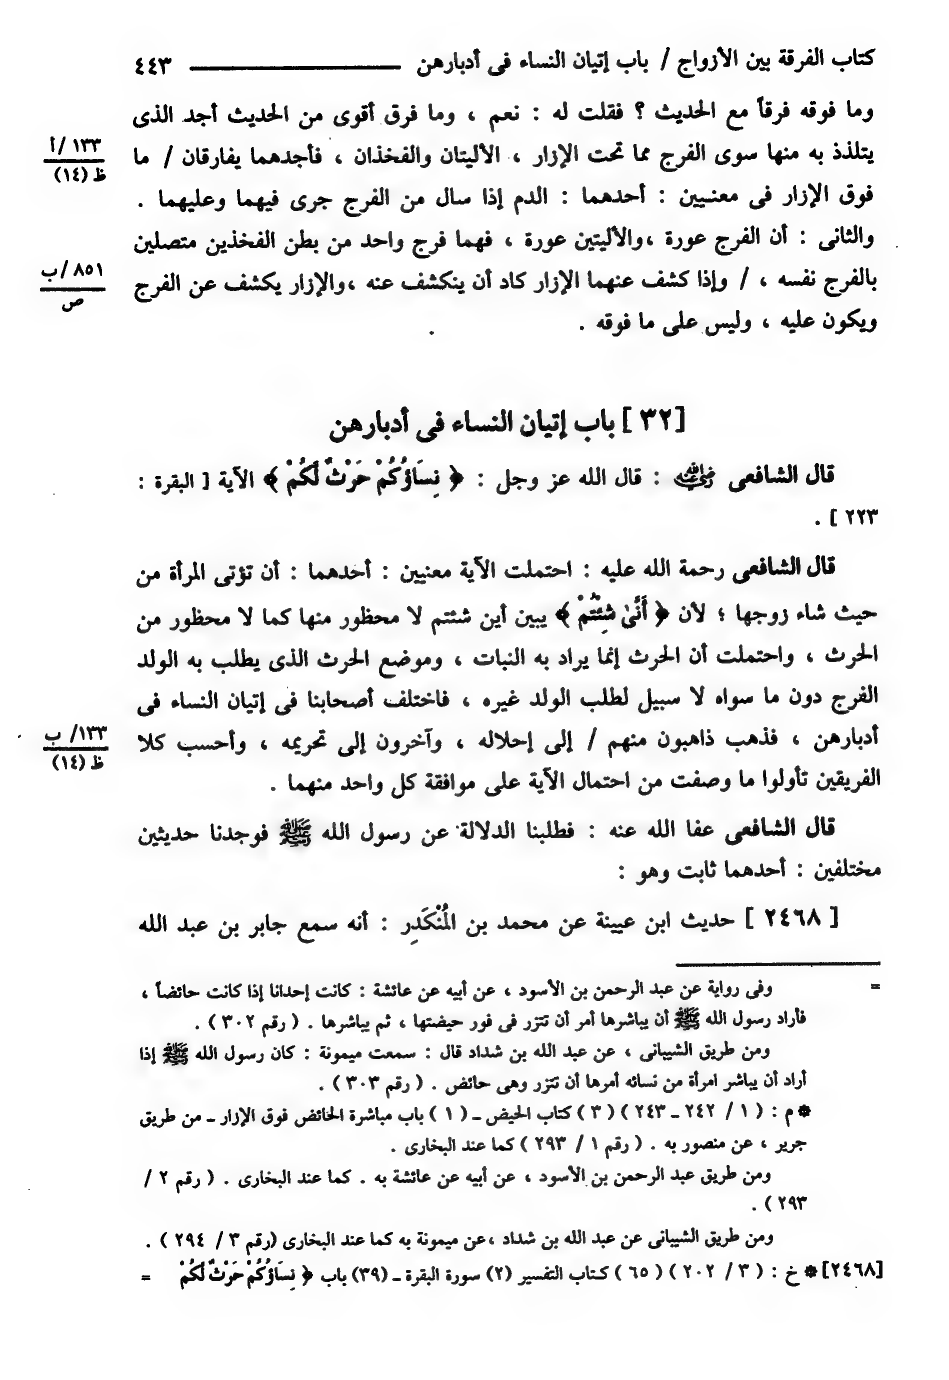 كتاب الفرقة بين الأزواج / باب إتيان النساء فى أدبارهن ــــــــــ ٤٤٣
وما فوقه فرقاً مع الحديث ؟ فقلت له : نعم ، وما فرق أقوى من الحديث أجد الذى
يتلذذ به منها سوى الفرج مما تحت الإزار ، الأليتان والفخذان ، فأجدهما يفارقان / ما
١٣٣ /أ
ظ (١٤)
فوق الإزار فى معنيين : أحدهما : الدم إذا سال من الفرج جرى فيهما وعليهما .
والثانى : أن الفرج عورة ،والأليتين عورة ، فهما فرج واحد من بطن الفخذين متصلين
بالفرج نفسه ، / وإذا كشف عنهما الإزار كاد أن ينكشف عنه ،والإزار يكشف عن الفرج
٨٥١ /ب
ص
ويكون عليه ، وليس على ما فوقه .
[ ٣٢ ] باب إتيان النساء فى أدبارهن
قال الشافعى رضي الله عنه : قال الله عز وجل : ﴿ نِسَاؤُكُمْ حَرْثٌ لَّكُمْ ﴾ الآية [ البقرة :
٢٢٣ ] .
قال الشافعى رحمة الله عليه : احتملت الآية معنيين : أحدهما : أن تؤتى المرأة من
حيث شاء زوجها ؛ لأن ﴿ أَنَّىٰ شِئْتُمْ ﴾ يبين أين شئتم لا محظور منها كما لا محظور من
الحرث ، واحتملت أن الحرث إنما يراد به النبات ، وموضع الحرث الذى يطلب به الولد
الفرج دون ما سواه لا سبيل لطلب الولد غيره ، فاختلف أصحابنا فى إتيان النساء فى
أدبارهن ، فذهب ذاهبون منهم / إلى إحلاله ، وآخرون إلى تحريمه ، وأحسب كلا
١٣٣/ ب
ظ (١٤)
الفريقين تأولوا ما وصفت من احتمال الآية على موافقة كل واحد منهما .
قال الشافعى عفا الله عنه : فطلبنا الدلالة عن رسول الله ﷺ فوجدنا حديثين
مختلفين : أحدهما ثابت وهو :
[ ٢٤٦٨ ] حديث ابن عيينة عن محمد بن المُنْكَدِر : أنه سمع جابر بن عبد الله
= وفى رواية عن عبد الرحمن بن الأسود ، عن أبيه عن عائشة : كانت إحدانا إذا كانت حائضاً ،
فأراد رسول الله ﷺ أن يباشرها أمر أن تتزر فى فور حيضتها ، ثم يباشرها . ( رقم ٣٠٢ ) .
ومن طريق الشيبانى ، عن عبد الله بن شداد قال : سمعت ميمونة : كان رسول الله ﷺ إذا
أراد أن يباشر امرأة من نسائه أمرها أن تتزر وهى حائض . ( رقم ٣٠٣ ) .
* م : ( ١ / ٢٤٢ ـ ٢٤٣ ) ( ٣ ) كتاب الحيض ـ ( ١ ) باب مباشرة الحائض فوق الإزار ـ من طريق
جرير ، عن منصور به . ( رقم ١ / ٢٩٣ ) كما عند البخارى .
ومن طريق عبد الرحمن بن الأسود ، عن أبيه عن عائشة به . كما عند البخارى . ( رقم ٢ /
٢٩٣ ) .
ومن طريق الشيبانى عن عبد الله بن شداد ،عن ميمونة به كما عند البخارى (رقم ٣ / ٢٩٤ ) .
[٢٤٦٨] * خ : ( ٣ / ٢٠٢ ) ( ٦٥ ) كتاب التفسير (٢) سورة البقرة ـ (٣٩) باب ﴿ نِسَاؤُكُمْ حَرْثٌ لَّكُمْ =